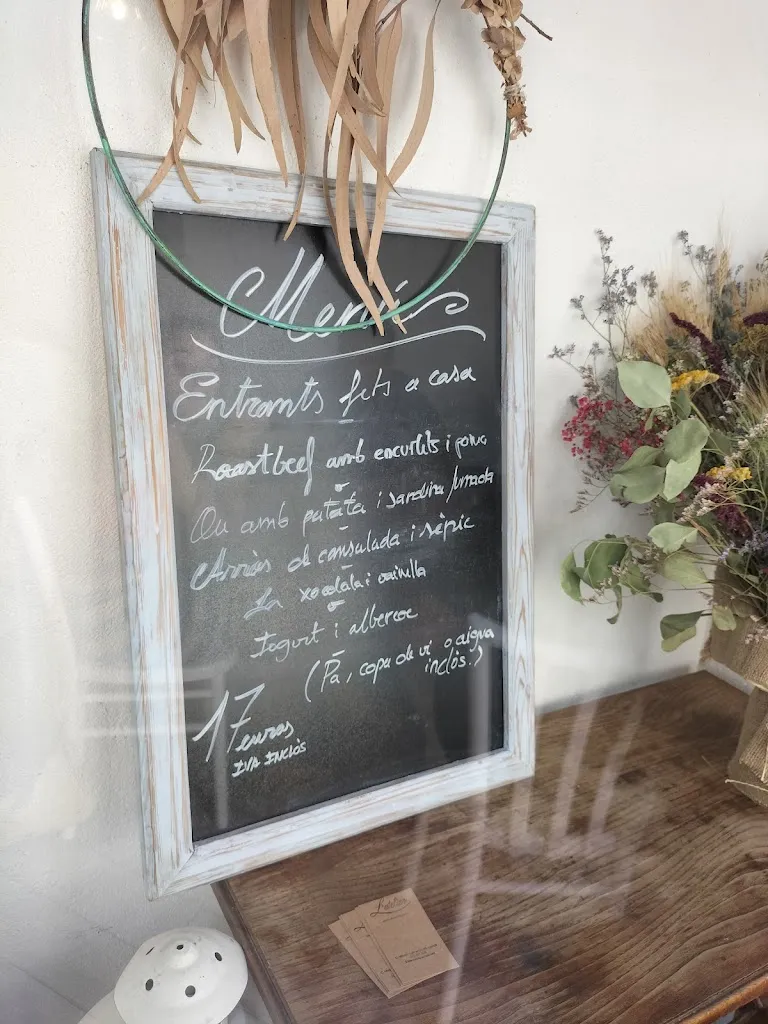 Menú
Entrants fets a casa
Roastbeef amb encurtits i poma
o
Ou amb patata i sardina fumada
Arròs de ensalada i sèpia
La xocolata i vainilla
o
Iogurt i albercoc
(Pa, copa de vi o aigua
inclòs.)
17 euros
IVA INCLÒS